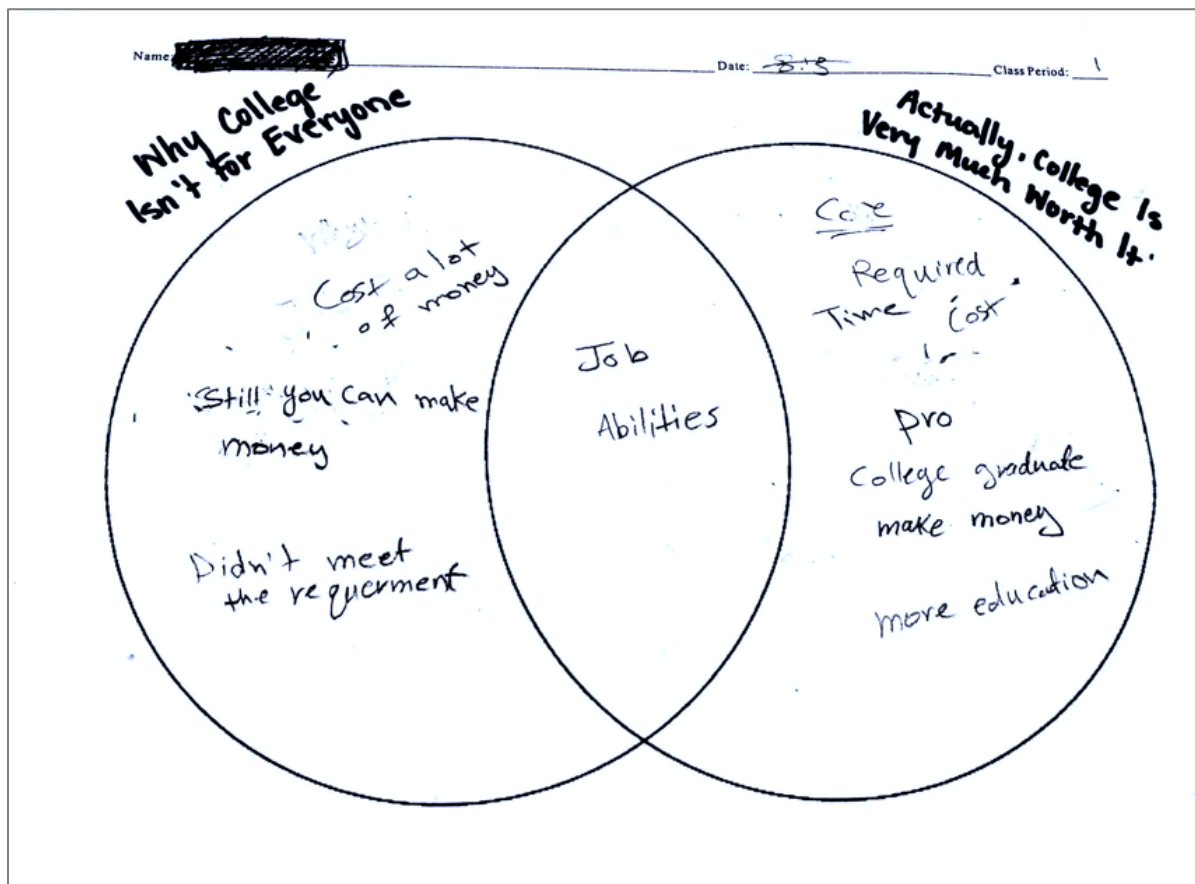 Name
Date:
Class Period: 1
Why College
Isn't for Everyone
Actually, College Is
Very Much Worth It.
Cost a lot
of money
Still you can make
money
Didn't meet
the requerment
Job
Abilities
Required
Time Cost
pro
College graduate
make money
more education